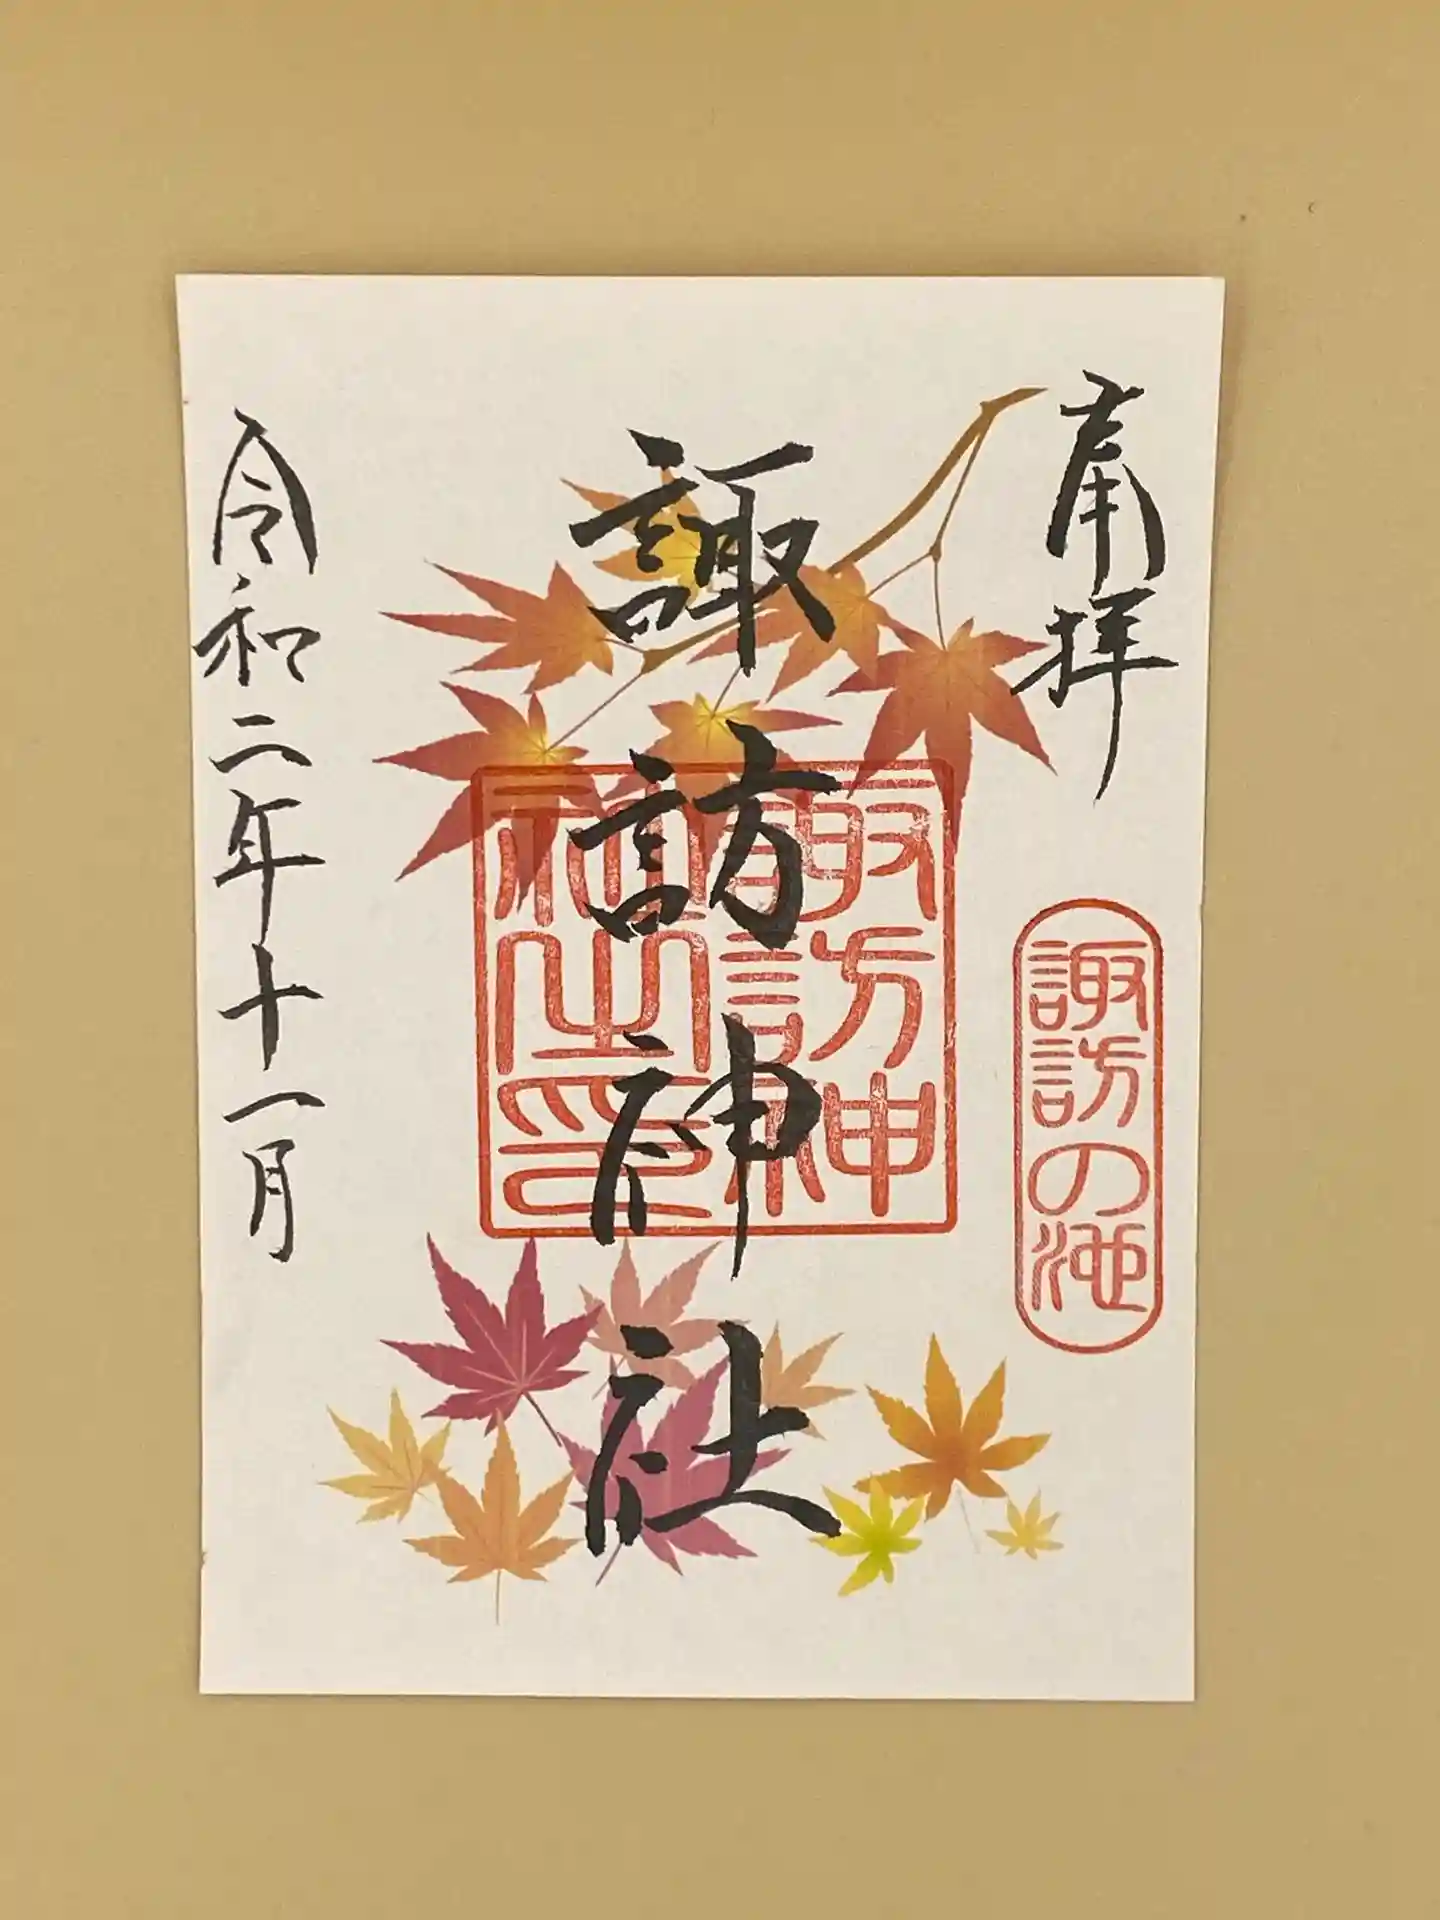 奉拝
諏訪の池
諏訪神社
諏訪神
社之印
令和二年十一月